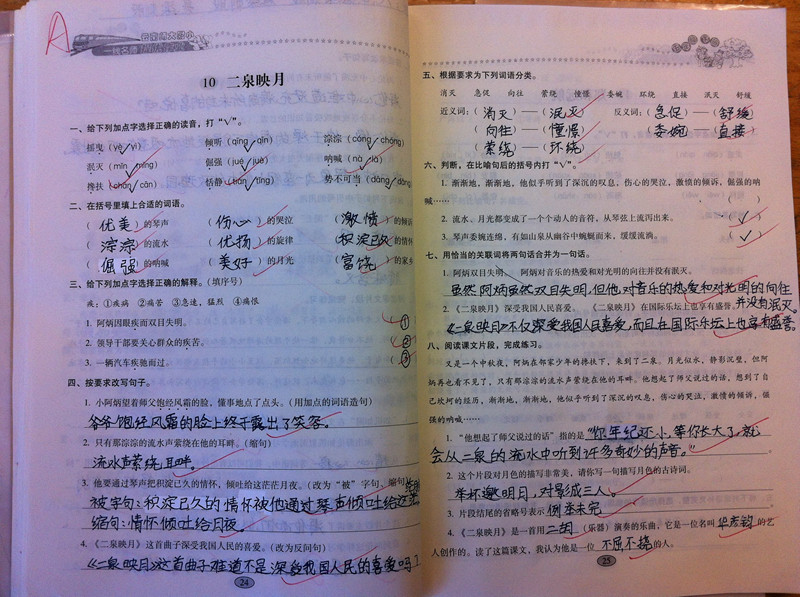 A
云南师大附小
一线名师
10 二泉映月
一、给下列加点字选择正确的读音，打“√”。
摇曳（yè yì） 倾听（qīng qīn） 淙淙（cóng chōng）
泯灭（mǐn mǐng） 倔强（jué juè） 呐喊（nà là）
搀扶（chān cān） 恬静（tián tíng） 势不可当（dāng dǎng）
二、在括号里填上合适的词语。
（优美）的琴声 （伤心）的哭泣 （激愤）的倾诉
（淙淙）的流水 （优扬）的旋律 （积淀已久）的情怀
（倔强）的呐喊 （美好）的月光 （富饶）的家乡
三、给下列加点字选择正确的解释。（填序号）
疾：①疾病 ②痛苦 ③急速，猛烈 ④痛恨
1. 阿炳因眼疾而双目失明。 （①）
2. 领导干部要关心群众的疾苦。 （②）
3. 一辆汽车疾驰而过。 （③）
四、按要求改写句子。
1. 小阿炳望着师父饱经风霜的脸，懂事地点了点头。（用加点的词语造句）
爷爷饱经风霜的脸上终于露出了笑容。
2. 只有那淙淙的流水声萦绕在他的耳畔。（缩句）
流水声萦绕耳畔。
3. 他要通过琴声把积淀已久的情怀，倾吐给这茫茫月夜。（改为“被”字句、缩句）
被字句：积淀已久的情怀被他通过琴声倾吐给这茫茫月夜
缩句：情怀倾吐给月夜
4. 《二泉映月》这首曲子深受我国人民的喜爱。（改为反问句）
《二泉映月》这首曲子难道不是深受我国人民的喜爱吗？
24
五、根据要求为下列词语分类。
消灭 急促 向往 萦绕 憧憬 委婉 环绕 直接 泯灭 舒缓
近义词：（消灭）——（泯灭） 反义词：（急促）——（舒缓）
（向往）——（憧憬） （委婉）——（直接）
（萦绕）——（环绕）
六、判断，在比喻句后的括号内打“√”。
1. 渐渐地，渐渐地，他似乎听到了深沉的叹息，伤心的哭泣，激愤的倾诉，倔强的呐
喊…… （ ）
2. 流水、月光都变成了一个个动人的音符，从琴弦上流泻出来。 （√）
3. 琴声委婉连绵，有如山泉从幽谷中蜿蜒而来，缓缓流淌。 （√）
七、用恰当的关联词将两句话合并为一句话。
1. 阿炳双目失明。 阿炳对音乐的热爱和对光明的向往并没有泯灭。
虽然阿炳虽然双目失明，但他对音乐的热爱和对光明的向往
并没有泯灭。
2. 《二泉映月》深受我国人民喜爱。 《二泉映月》在国际乐坛上也享有盛誉。
《二泉映月》不仅深受我国人民喜爱，而且在国际乐坛上也享有盛誉。
八、阅读课文片段，完成练习。
又是一个中秋夜，阿炳在邻家少年的搀扶下，来到了二泉。月光似水，静影沉璧，但阿
炳再也看不见了，只有那淙淙的流水声萦绕在他的耳畔。他想起了师父说过的话，想到了自
己坎坷的经历，渐渐地，渐渐地，他似乎听到了深沉的叹息，伤心的哭泣，激愤的倾诉，倔
强的呐喊……
1. “他想起了师父说过的话”指的是“你年纪还小，等你长大了，就
会从二泉的流水中听到许多奇妙的声音。”
2. 这个片段对月色的描写非常美，请你写一句描写月色的古诗词。
举杯邀明月，对影成三人。
3. 片段结尾的省略号表示例举未完。
4. 《二泉映月》是一首用二胡（乐器）演奏的乐曲，它是一位名叫华彦钧的艺
人创作的。读了这篇课文，我认为他是一位不屈不挠的人。
25